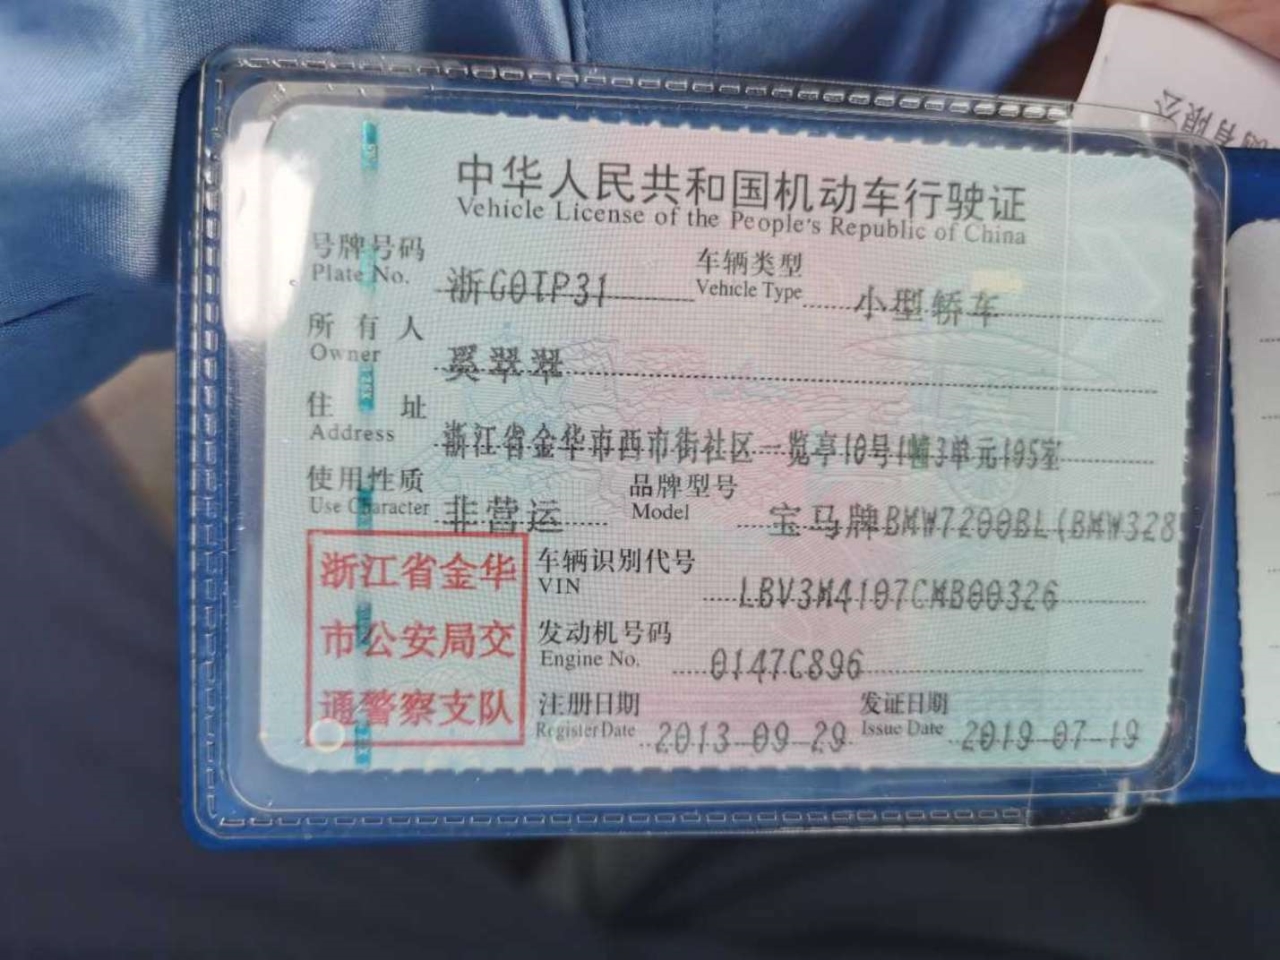 中华人民共和国机动车行驶证
Vehicle License of the People's Republic of China
号牌号码 浙G0TP31 车辆类型 小型轿车
Plate No. Vehicle Type
所有人 奚翠翠
Owner
住址 浙江省金华市西市街社区一览亭10号1幢3单元105室
Address
使用性质 非营运 品牌型号 宝马牌BMW7200BL(BMW328
Use Character Model
浙江省金华
市公安局交
通警察支队
车辆识别代号 LBV3M4107CMB00326
VIN
发动机号码 0147C896
Engine No.
注册日期 2013-09-29 发证日期 2019-07-19
Register Date Issue Date
有限公